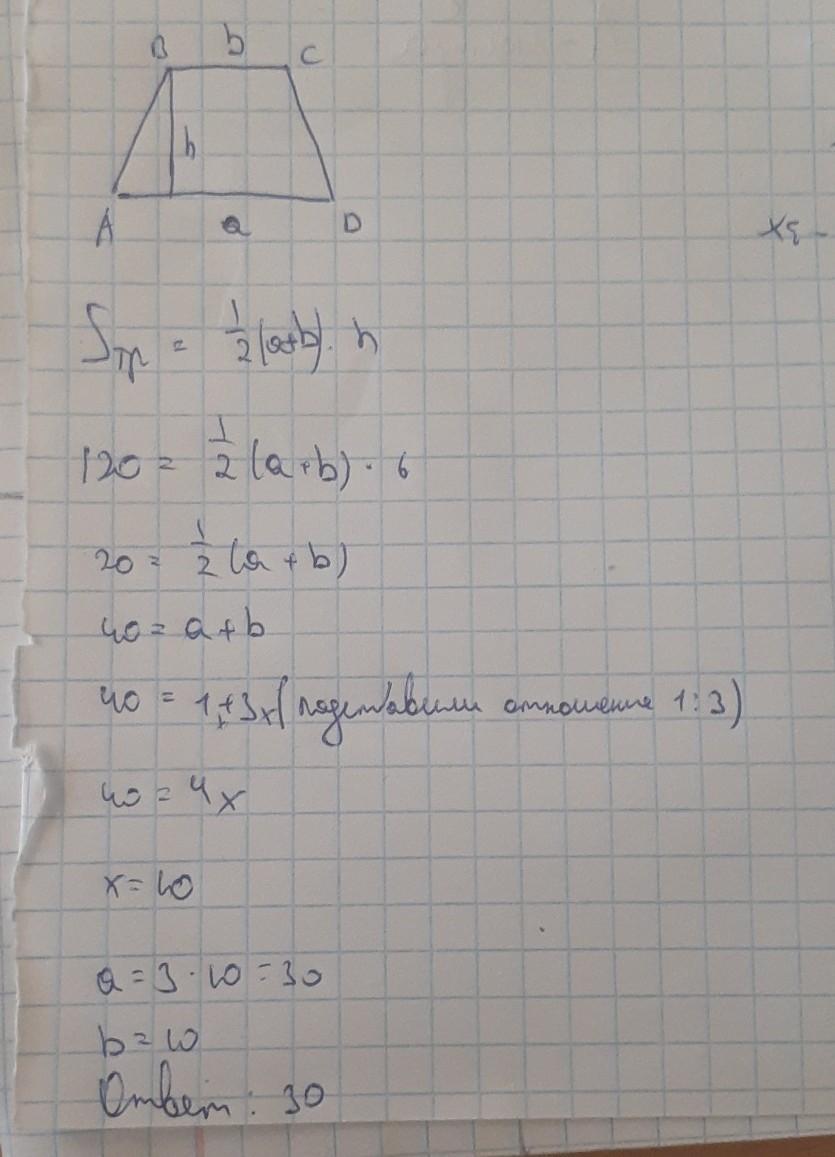 B b C
h
A a D
Sтр = 1/2 (a+b) · h
120 = 1/2 (a+b) · 6
20 = 1/2 (a + b)
40 = a + b
40 = 1x+3x (подставили отношение 1:3)
40 = 4x
x = 10
a = 3 · 10 = 30
b = 10
Ответ: 30